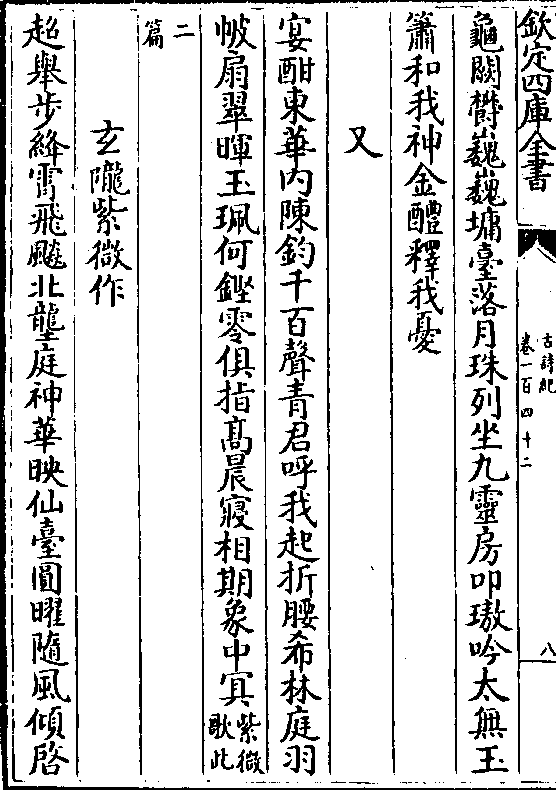 欽定四庫全書
古詩紀
卷一百四十二
八
龜闕鬱巍巍墉臺落月珠列坐九靈房叩璈吟太無玉
簫和我神金醴釋我憂
又
宴酣東華內陳鈞千百聲青君呼我起折腰希林庭羽
帔扇翠暉玉珮何鏗零俱指高晨寢相期象中㝠紫微歌此
二篇
玄隴紫微作
超舉步絳霄飛飈北壟庭神華映仙臺圓曜隨風傾啓